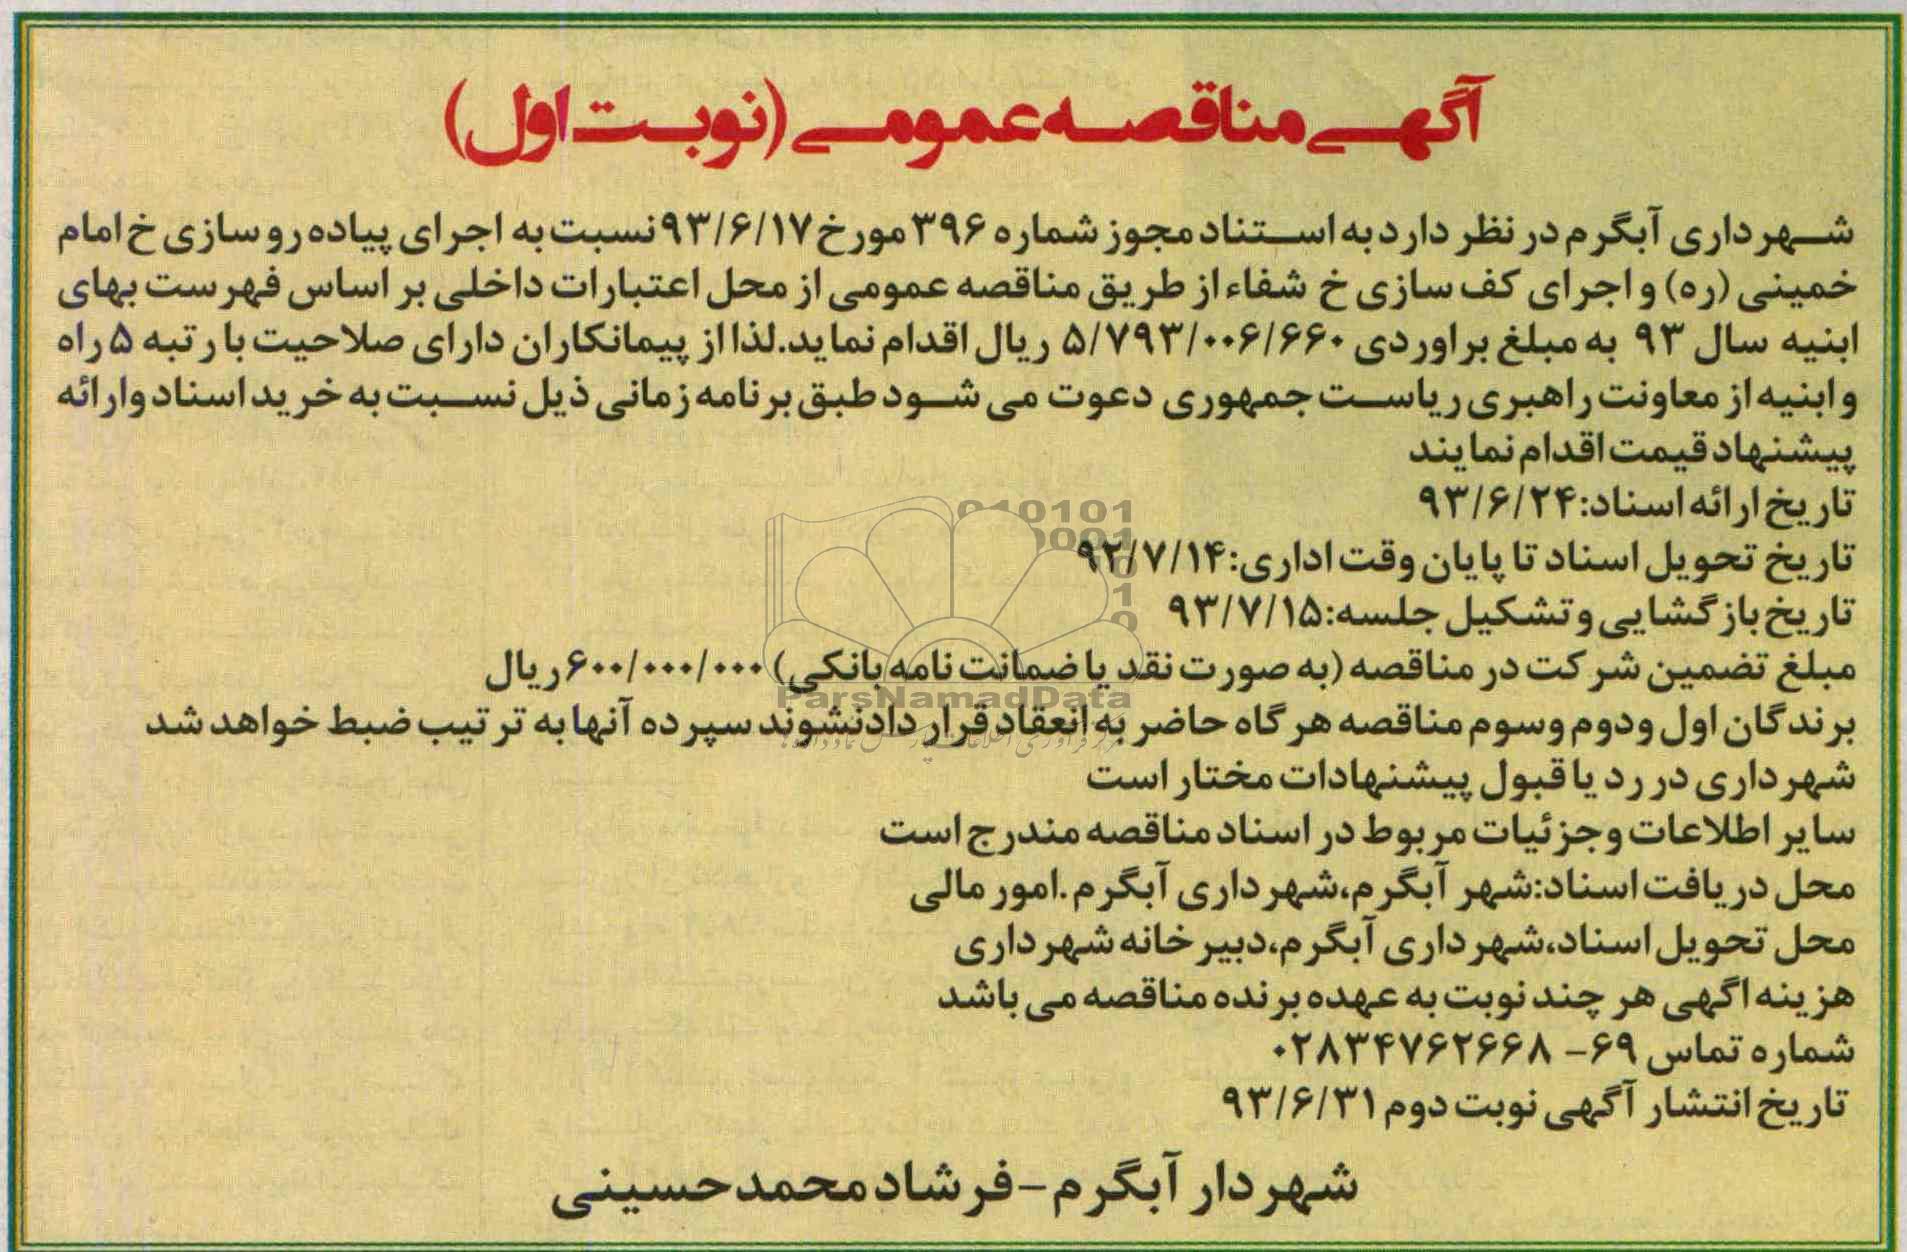 آگهی مناقصه عمومی (نوبت اول)
شهرداری آبگرم در نظر دارد به استناد مجوز شماره ۳۹۶ مورخ ۹۳/۶/۱۷ نسبت به اجرای پیاده رو سازی خ امام
خمینی (ره) و اجرای کف سازی خ شفاء از طریق مناقصه عمومی از محل اعتبارات داخلی بر اساس فهرست بهای
ابنیه سال ۹۳ به مبلغ براوردی ۵/۷۹۳/۰۰۶/۶۶۰ ریال اقدام نماید.لذا از پیمانکاران دارای صلاحیت با رتبه ۵ راه
و ابنیه از معاونت راهبری ریاست جمهوری دعوت می شود طبق برنامه زمانی ذیل نسبت به خرید اسناد وارائه
پیشنهاد قیمت اقدام نمایند
تاریخ ارائه اسناد:۹۳/۶/۲۴
تاریخ تحویل اسناد تا پایان وقت اداری:۹۲/۷/۱۴
تاریخ بازگشایی و تشکیل جلسه:۹۳/۷/۱۵
مبلغ تضمین شرکت در مناقصه (به صورت نقد یا ضمانت نامه بانکی) ۶۰۰/۰۰۰/۰۰۰ ریال
ParsNamadData
برندگان اول ودوم وسوم مناقصه هر گاه حاضر به انعقاد قرار دادنشوند سپرده آنها به ترتیب ضبط خواهد شد
شهرداری در رد یا قبول پیشنهادات مختار است
سایر اطلاعات وجزئیات مربوط در اسناد مناقصه مندرج است
محل دریافت اسناد:شهر آبگرم،شهرداری آبگرم.امور مالی
محل تحویل اسناد،شهرداری آبگرم،دبیرخانه شهرداری
هزینه اگهی هر چند نوبت به عهده برنده مناقصه می باشد
شماره تماس ۶۹- ۰۲۸۳۴۷۶۲۶۶۸
تاریخ انتشار آگهی نوبت دوم ۹۳/۶/۳۱
شهردار آبگرم-فرشاد محمدحسینی